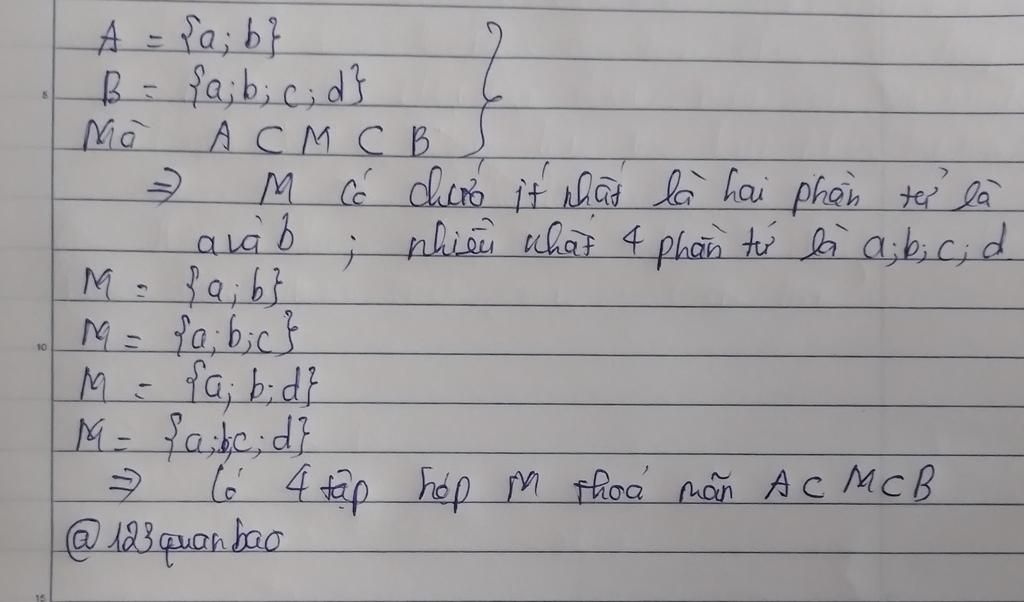 A = {a; b}
B = {a; b; c; d}
Mà A ⊂ M ⊂ B
⇒ M có chứa ít nhất là hai phần tử là
a và b ; nhiều nhất 4 phần tử là a; b; c; d
M = {a; b}
M = {a; b; c}
M = {a; b; d}
M = {a; b; c; d}
⇒ Có 4 tập hợp M thoả mãn A ⊂ M ⊂ B
@123quanbao
5
10
15